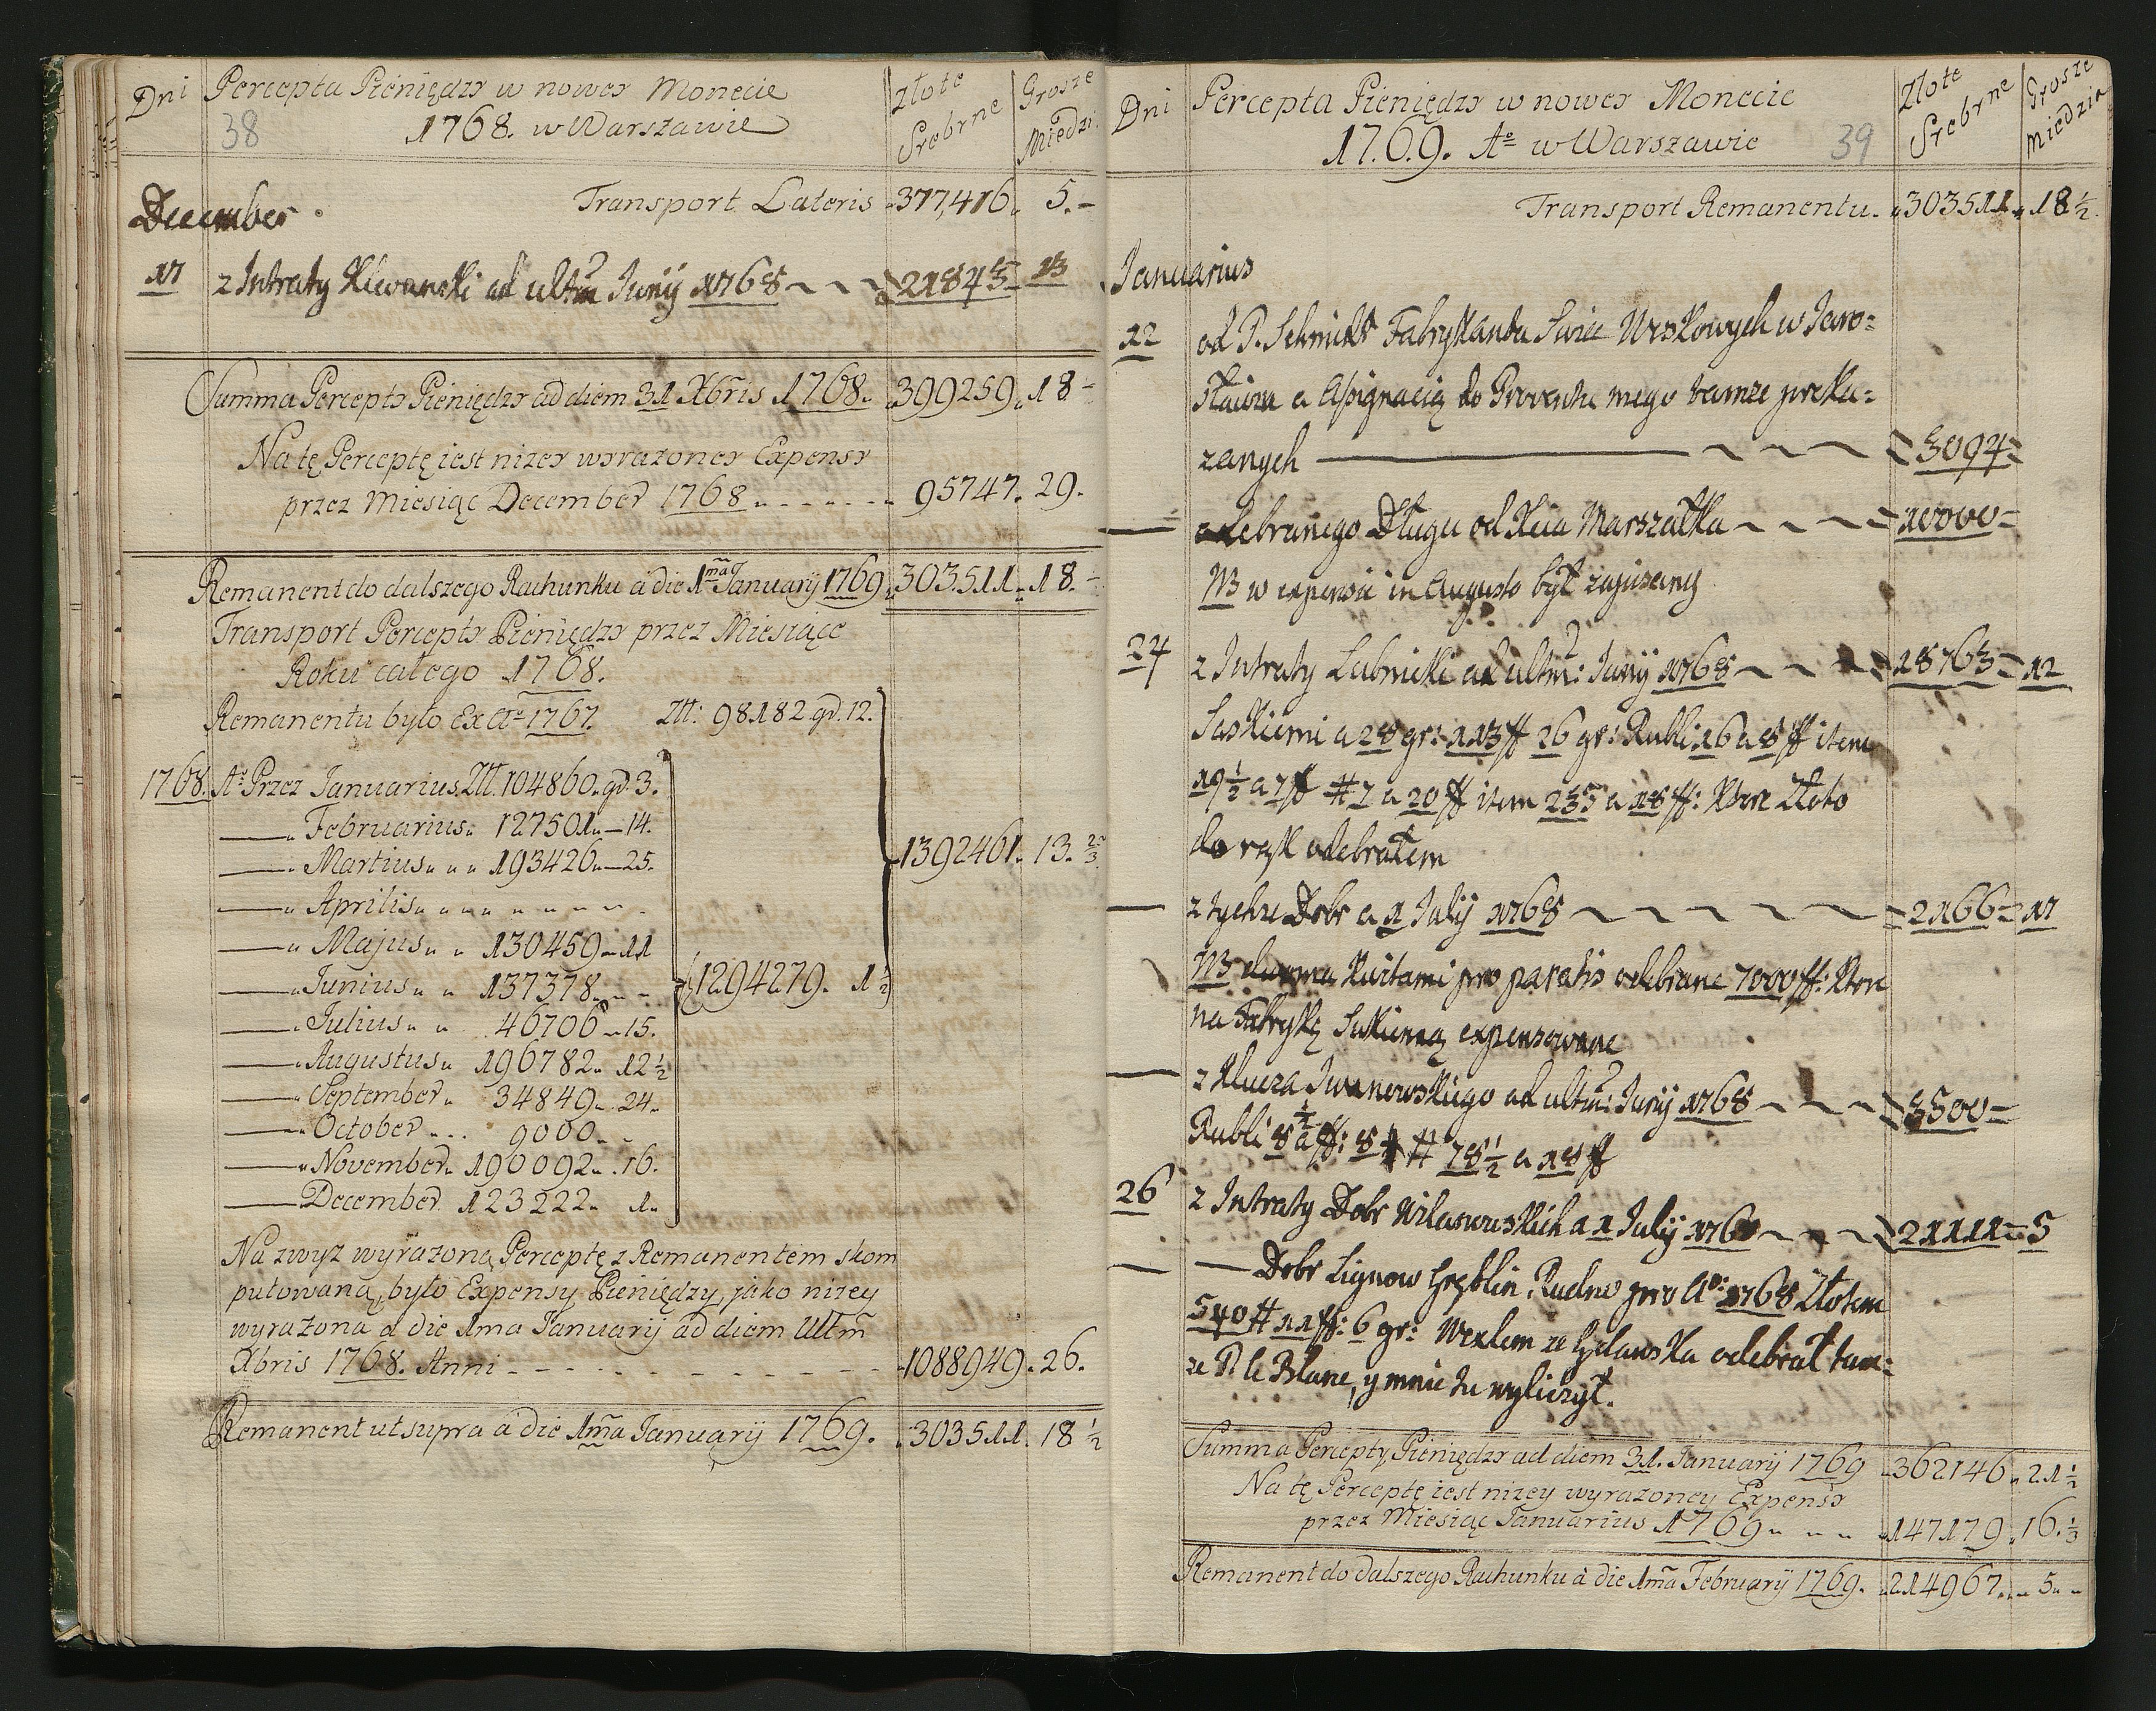 Dni Percepta Pieniędzy w nowey Monecie Złote Srebrne Grosze Miedzi.
38 1768. w Warszawie
Transport Lateris 377,416. 5.-
December
17 z Intraty Klewanski ad ultm Junij 1768 21843 13
Summa Percepty Pieniędzy ad diem 31 Xbris 1768. 399259. 18-
Na tę Perceptę iest nizey wyrazoney Expensy
przez Miesiąc December 1768 95747. 29.
Remanent do dalszego Rachunku a die 1ma January 1769 303511. 18.-
Transport Percepty Pieniędzy przez Miesiące
Roku całego 1768.
Remanentu było Ex Ao 1767. Złł: 98182 gr. 12.
1768. Ao Przez Januarius Złł. 104860. gr. 3.
Februarius 127501. 14.
Martius 193426. 25.
1392461. 13. 2/3
Aprilis
Majus 130459. 11
Junius 137378. (1294279. 1 1/2)
Julius 46706. 15.
Augustus 196782. 12 1/2
September 34849. 24.
October 9000.
November 190092. 16.
December 123222. 1.
Na zwyz wyrazoną Perceptę z Remanentem skom
putowaną, było Expensy Pieniędzy, jako nizey
wyrazona a die 1ma Januarij ad diem Ultm
Xbris 1768. Anni 1088949. 26.
Remanent ut supra a die 1ma Januarij 1769. 303511. 18 1/2
Dni Percepta Pieniędzy w nowey Monecie Złote Srebrne Grosze Miedzia
1769. Ao w Warszawie 39
Transport Remanentu. 303511. 18 1/2
Januarius
12 od P. Schmidt Fabrykanta Swiec Woskowych w Jaro=
sławiu a Assignacią do Proventu mego tamze przeka=
zanych 3094
odebranego Długu od Xcia Marszałka 10000
NB w expensie in Augusto był zapisany
24 z Intraty Lubnicki ad ultm: Junij 1768 18763 12
Saskiemi a 28 gr: 113 ff 26 gr: Rubli 16 a 8 ff item
19 1/2 a 7 ff # 7 a 20 ff item 235 a 18 ff: Ktore Złoto
do rąk odebrałem
z tychze Dobr a 1 Julij 1768 2166 17
NB dwoma Kwitami pro paratis odebrane 7000 ff: Ktore
na Fabrykę Sukienną expensowane
z Klucza Iwanowskiego ad ultm: Junij 1768 3500
Rubli 8 1/2 a ff: 8 # 78 1/2 a 18 ff
26 z Intraty Dobr Wilanowskich a 1 Julij 1768 21111 5
Dobr Lignow Gręblin, Rudno pro Ao: 1768 Złotem
540 # 11 ff: 6 gr: Wexlem ze Gdanska odebrał tam=
ze P. le Blanc, y mnie tu wyliczył.
Summa Percepty Pieniędzy ad diem 31. Januarij 1769 362146. 21 1/2
Na tę Perceptę iest nizey wyrazoney Expensy
przez Miesiąc Januarius 1769 147179. 16. 1/3
Remanent do dalszego Rachunku a die 1ma Februarij 1769. 214967. 5.